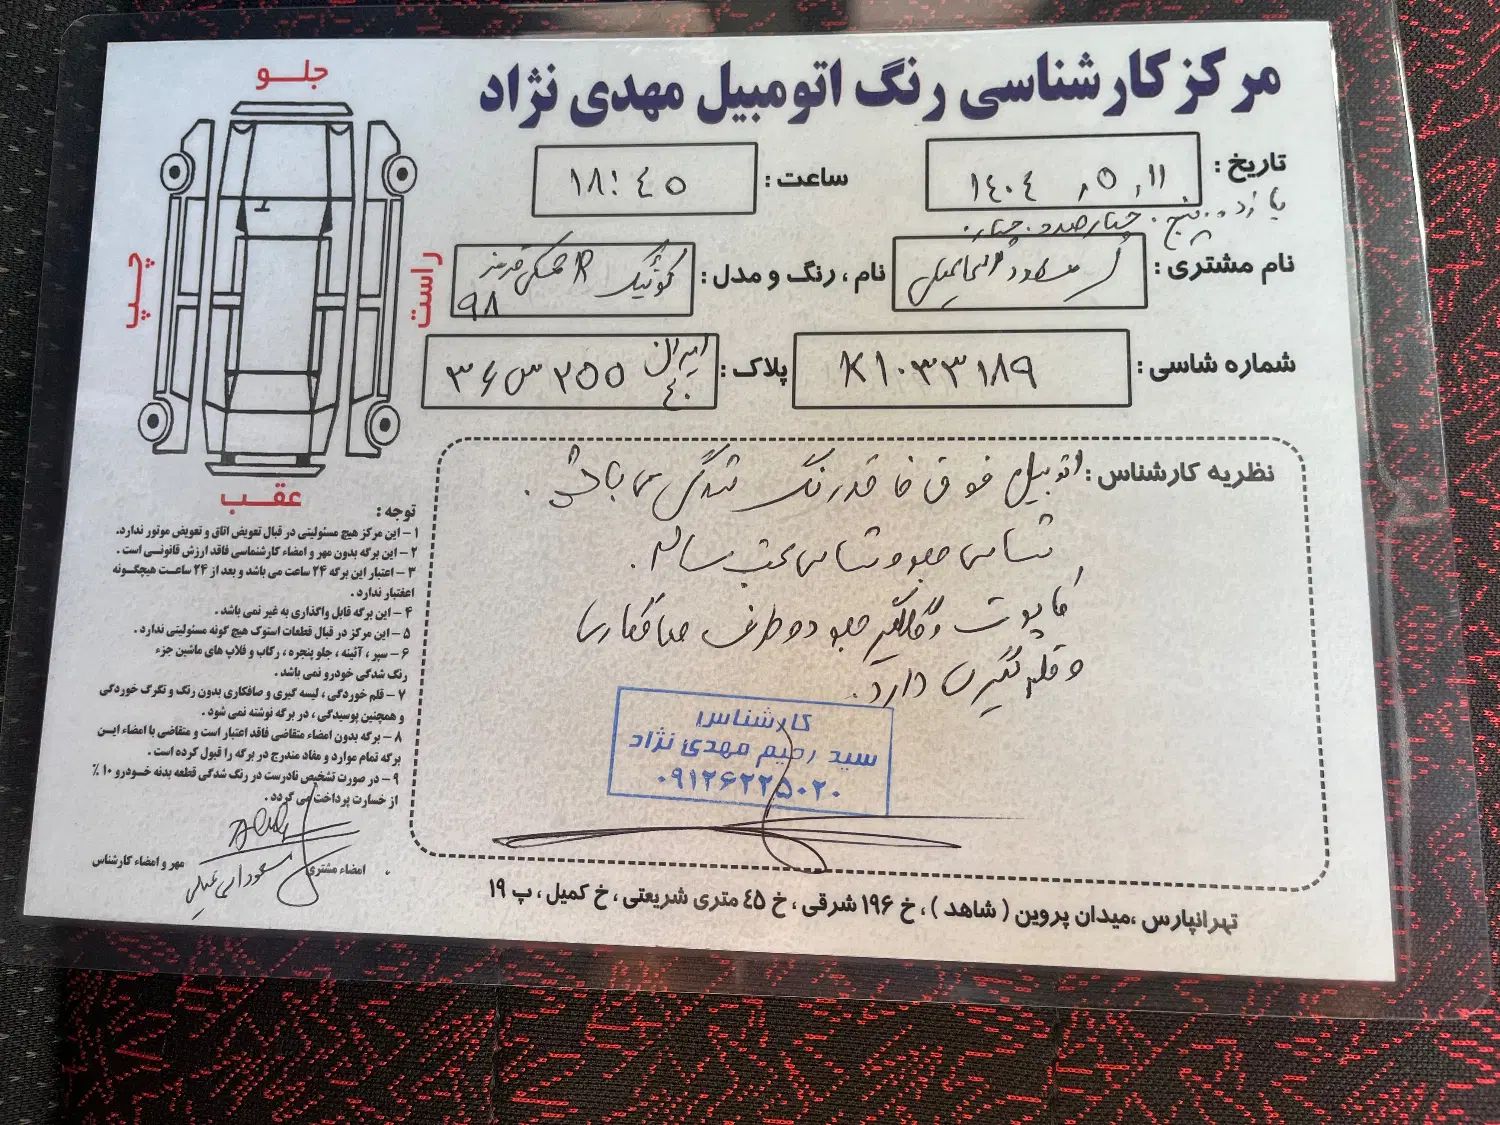 مرکز کارشناسی رنگ اتومبیل مهدی نژاد
تاریخ : ۱۴۰۴،۵،۱۱
یازده. پنج. چهارصد و چهار.
ساعت : ۱۸:۴۵
نام مشتری : مسعود اسماعیلی
نام ، رنگ و مدل : کوئیک R مشکی قرمز ۹۸
شماره شاسی : K۱۰۳۳۱۸۹
پلاک : ۳۶ س ۲۵۵ ایران ۴۰
نظریه کارشناس : اتومبیل فوق فاقد رنگ شدگی می باشد.
شاسی جلو و شاسی عقب سالم.
کاپوت و گلگیر جلو دو طرف صافکاری
و قلم گیری دارد.
کارشناس
سید رحیم مهدی نژاد
۰۹۱۲۶۲۲۵۰۲۰
جلو
چپ
راست
عقب
توجه :
۱ – این مرکز هیچ مسئولیتی در قبال تعویض اتاق و تعویض موتور ندارد.
۲ – این برگه بدون مهر و امضاء کارشناسی فاقد ارزش قانونی است .
۳ – اعتبار این برگه ۲۴ ساعت می باشد و بعد از ۲۴ ساعت هیچگونه
اعتبار ندارد .
۴ – این برگه قابل واگذاری به غیر نمی باشد .
۵ – این مرکز در قبال قطعات استوک هیچ گونه مسئولیتی ندارد .
۶ – سپر ، آئینه ، جلو پنجره ، رکاب و فلاپ های ماشین جزء
رنگ شدگی خودرو نمی باشد .
۷ – قلم خوردگی ، لیسه گیری و صافکاری بدون رنگ و تگرگ خوردگی
و همچنین پوسیدگی ، در برگه نوشته نمی شود .
۸ – برگه بدون امضاء متقاضی فاقد اعتبار است و متقاضی با امضاء این
برگه تمام موارد و مفاد مندرج در برگه را قبول کرده است .
۹ – در صورت تشخیص نادرست در رنگ شدگی قطعه بدنه خودرو ۱۰ ٪
از خسارت پرداخت می گردد .
امضاء مشتری
مسعود اسماعیلی
مهر و امضاء کارشناس
تهرانپارس ،میدان پروین ( شاهد ) ، خ ۱۹۶ شرقی ، خ ۴۵ متری شریعتی ، خ کمیل ، پ ۱۹